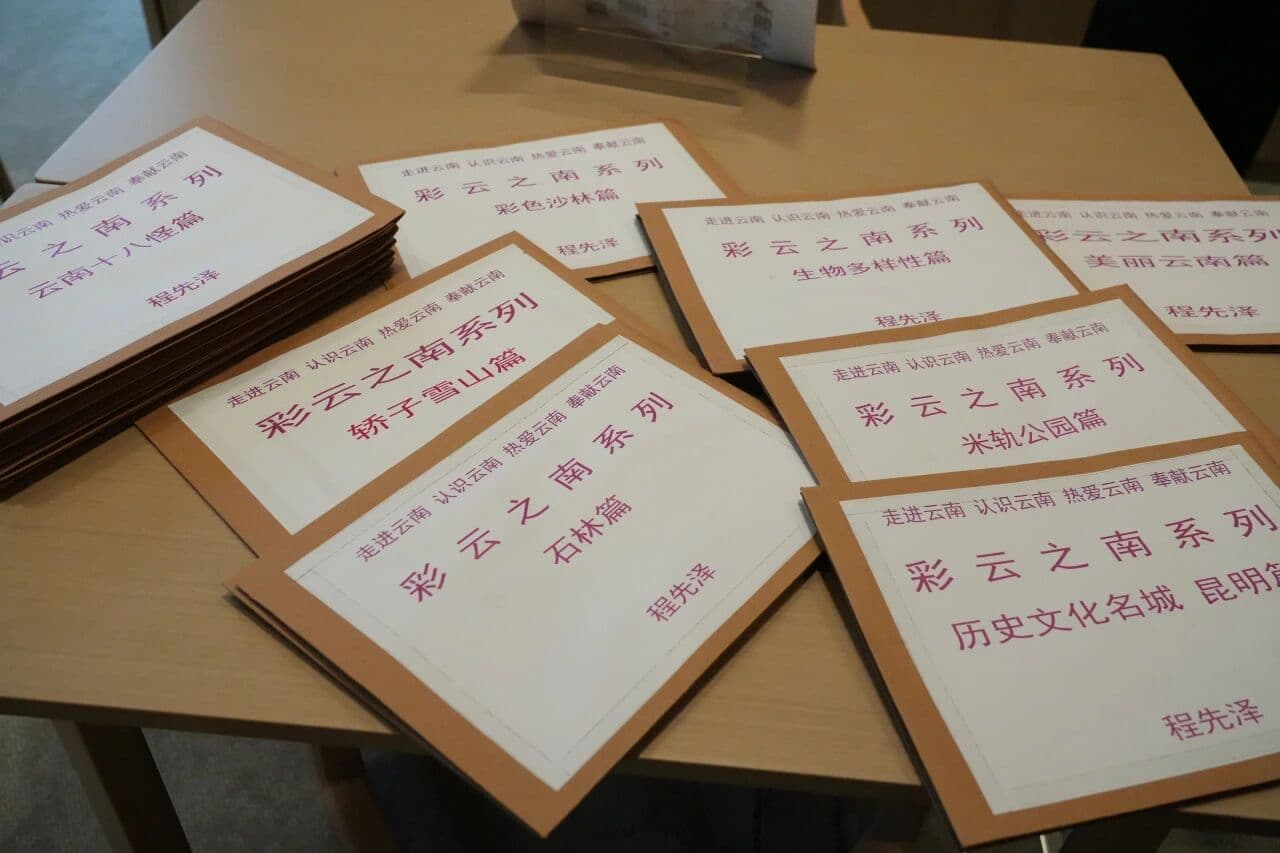 认识云南 热爱云南 奉献云南
云之南系列
云南十八怪篇
程先泽
走进云南 认识云南 热爱云南 奉献云南
彩云之南系列
彩色沙林篇
程先泽
走进云南 认识云南 热爱云南 奉献云南
彩云之南系列
生物多样性篇
程先泽
走进云南 认识云南 热爱云南 奉献云南
彩云之南系列
美丽云南篇
程先泽
走进云南 认识云南 热爱云南 奉献云南
彩云之南系列
轿子雪山篇
走进云南 认识云南 热爱云南 奉献云南
彩云之南系列
米轨公园篇
走进云南 认识云南 热爱云南 奉献云南
彩云之南系列
石林篇
程先泽
走进云南 认识云南 热爱云南 奉献云南
彩云之南系列
历史文化名城 昆明篇
程先泽